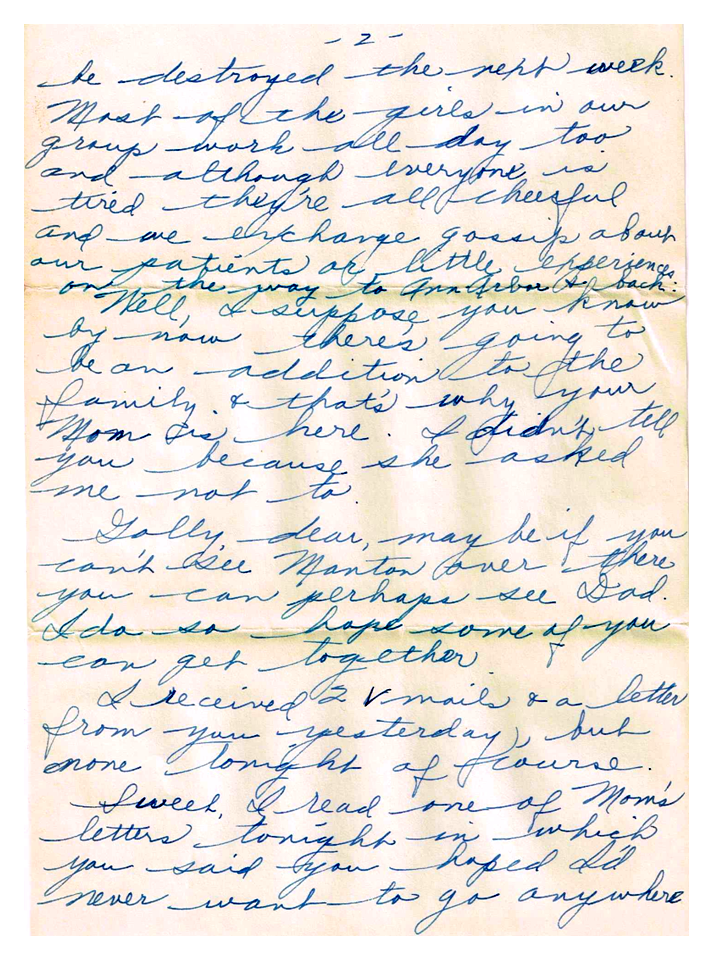 - 2 -
be destroyed the next week.
Most of the girls in our
group work all day too
and although everyone is
tired they're all cheerful
and we exchange gossip about
our patients or little experiences
on the way to Ann Arbor & back.
Well, I suppose you know
by now there's going to
be an addition to the
family & that's why your
Mom is here. I didn't tell
you because she asked
me not to.
Golly dear, maybe if you
can't see Manton over there
you can perhaps see Dad.
I do so hope some of you
can get together
I received 2 V mails & a letter
from you yesterday, but
none tonight of course.
Sweet, I read one of Mom's
letters tonight in which
you said you hoped I'd
never want to go anywhere